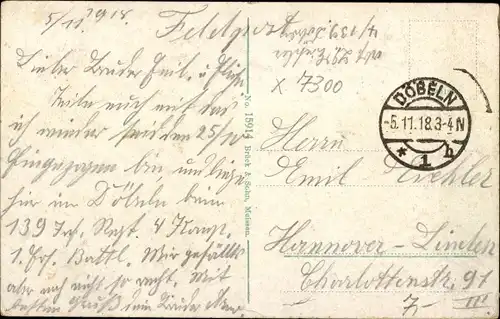 5/11. 1918.
Feldpost
Lieber Bruder Emil. u.
Teile euch mit das
ich wieder seit den 25/10
Eingezogen bin und liege
hier in Döbeln beim
139 Inf. Regt. 4 Komp.
1. Ers. Battl. Mir gefällts
aber noch nicht so recht. Mit
besten Gruß dein Bruder
No. 15914 Brück & Sohn, Meissen.
4/139
X 7300
DÖBELN
-5.11.18.3-4N
* 1 h
Herrn
Emil
Hannover-Linden
Charlottenstr. 91
III
7,-